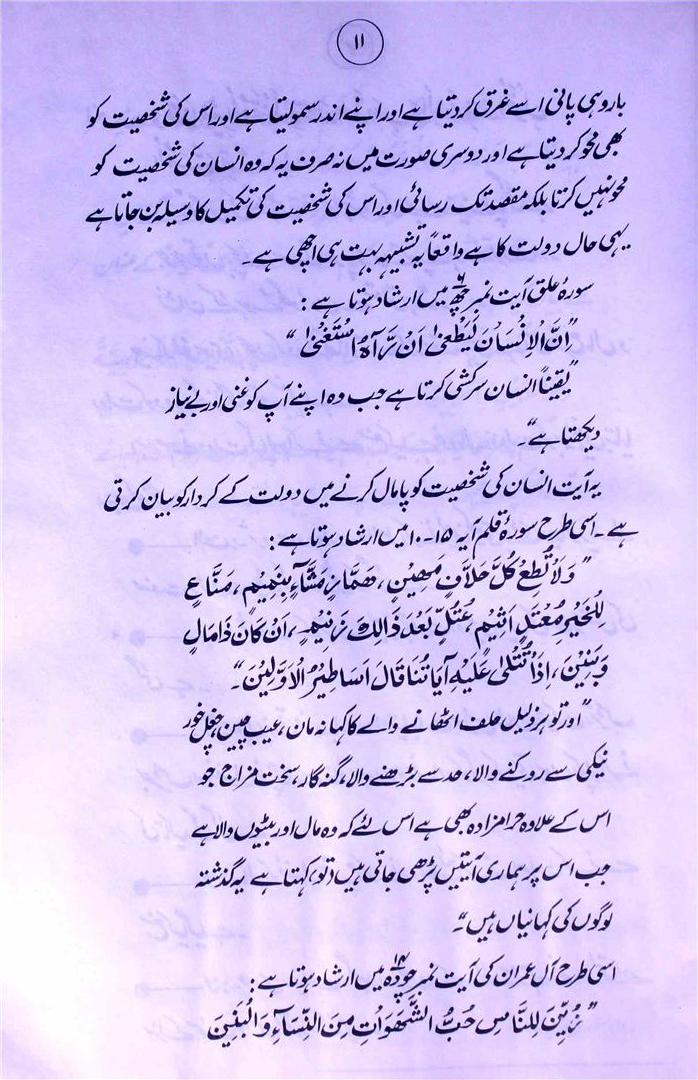 ۱۱
بار وہی پانی اسے غرق کر دیتا ہے اور اپنے اندر سمو لیتا ہے اور اس کی شخصیت کو
بھی محو کر دیتا ہے اور دوسری صورت میں نہ صرف یہ کہ وہ انسان کی شخصیت کو
محو نہیں کرتا بلکہ مقصد تک رسائی اور اس کی شخصیت کی تکمیل کا وسیلہ بن جاتا ہے
یہی حال دولت کا ہے واقعاً یہ تشبیہہ بہت ہی اچھی ہے۔
سورۂ علق آیت نمبر چھ ۶ میں ارشاد ہوتا ہے :
”اِنَّ الْاِنْسَانَ لَیَطْغیٰ اَنْ رَّآہُ اسْتَغْنیٰ“
”یقیناً انسان سرکشی کرتا ہے جب وہ اپنے آپ کو غنی اور بے نیاز
دیکھتا ہے“۔
یہ آیت انسان کی شخصیت کو پامال کرنے میں دولت کے کردار کو بیان کرتی
ہے۔ اسی طرح سورۂ قلم آیہ ۱۵-۱۰ میں ارشاد ہوتا ہے :
”وَلَا تُطِعْ کُلَّ حَلَّافٍ مَہِیْنٍ، ھَمَّازٍ مَشَّآءٍ بِنَمِیْمٍ، مَنَّاعٍ
لِلْخَیْرِ مُعْتَدٍ اَثِیْمٍ، عُتُلٍّ بَعْدَ ذَالِکَ زَنِیْمٍ، اَنْ کَانَ ذَا مَالٍ
وَ بَنِیْنَ، اِذَا تُتْلیٰ عَلَیْہِ آیَاتُنَا قَالَ اَسَاطِیْرُ الْاَوَّلِیْنَ“۔
”اور تو ہر ذلیل حلف اٹھانے والے کا کہا نہ مان، عیب چین، چغل خور
نیکی سے روکنے والا، حد سے بڑھنے والا، گنہ گار، سخت مزاج جو
اس کے علاوہ حرامزادہ بھی ہے اس لئے کہ وہ مال اور بیٹوں والا ہے
جب اس پر ہماری آیتیں پڑھی جاتی ہیں (تو) کہتا ہے یہ گذشتہ
لوگوں کی کہانیاں ہیں“۔
اسی طرح آل عمران کی آیت نمبر چودہ ۱۴ میں ارشاد ہوتا ہے :
”زُیِّنَ لِلنَّاسِ حُبُّ الشَّھَوَاتِ مِنَ النِّسَآءِ وَالْبَنِیْنَ